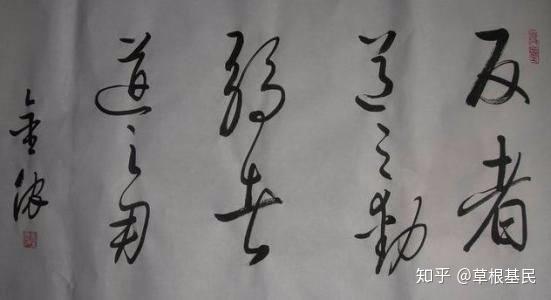 反者
道之動
弱者
道之用
知乎 @草根基民